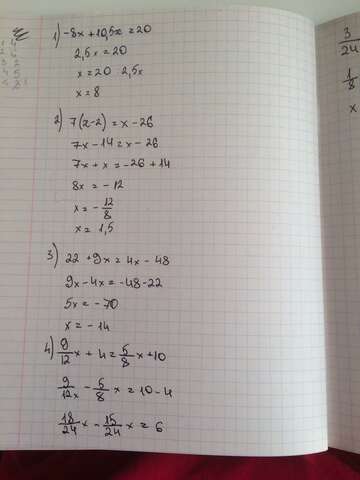 1) -8x + 10,5x = 20
2,5x = 20
x = 20 2,5x
x = 8
2) 7(x-2) = x - 26
7x - 14 = x - 26
7x + x = -26 + 14
8x = -12
x = -12/8
x = 1,5
3) 22 + 9x = 4x - 48
9x - 4x = -48 - 22
5x = -70
x = -14
4) 9/12 x + 4 = 5/8 x + 10
9/12x - 5/8 x = 10 - 4
18/24 x - 15/24 x = 6
3/24
1/8
x